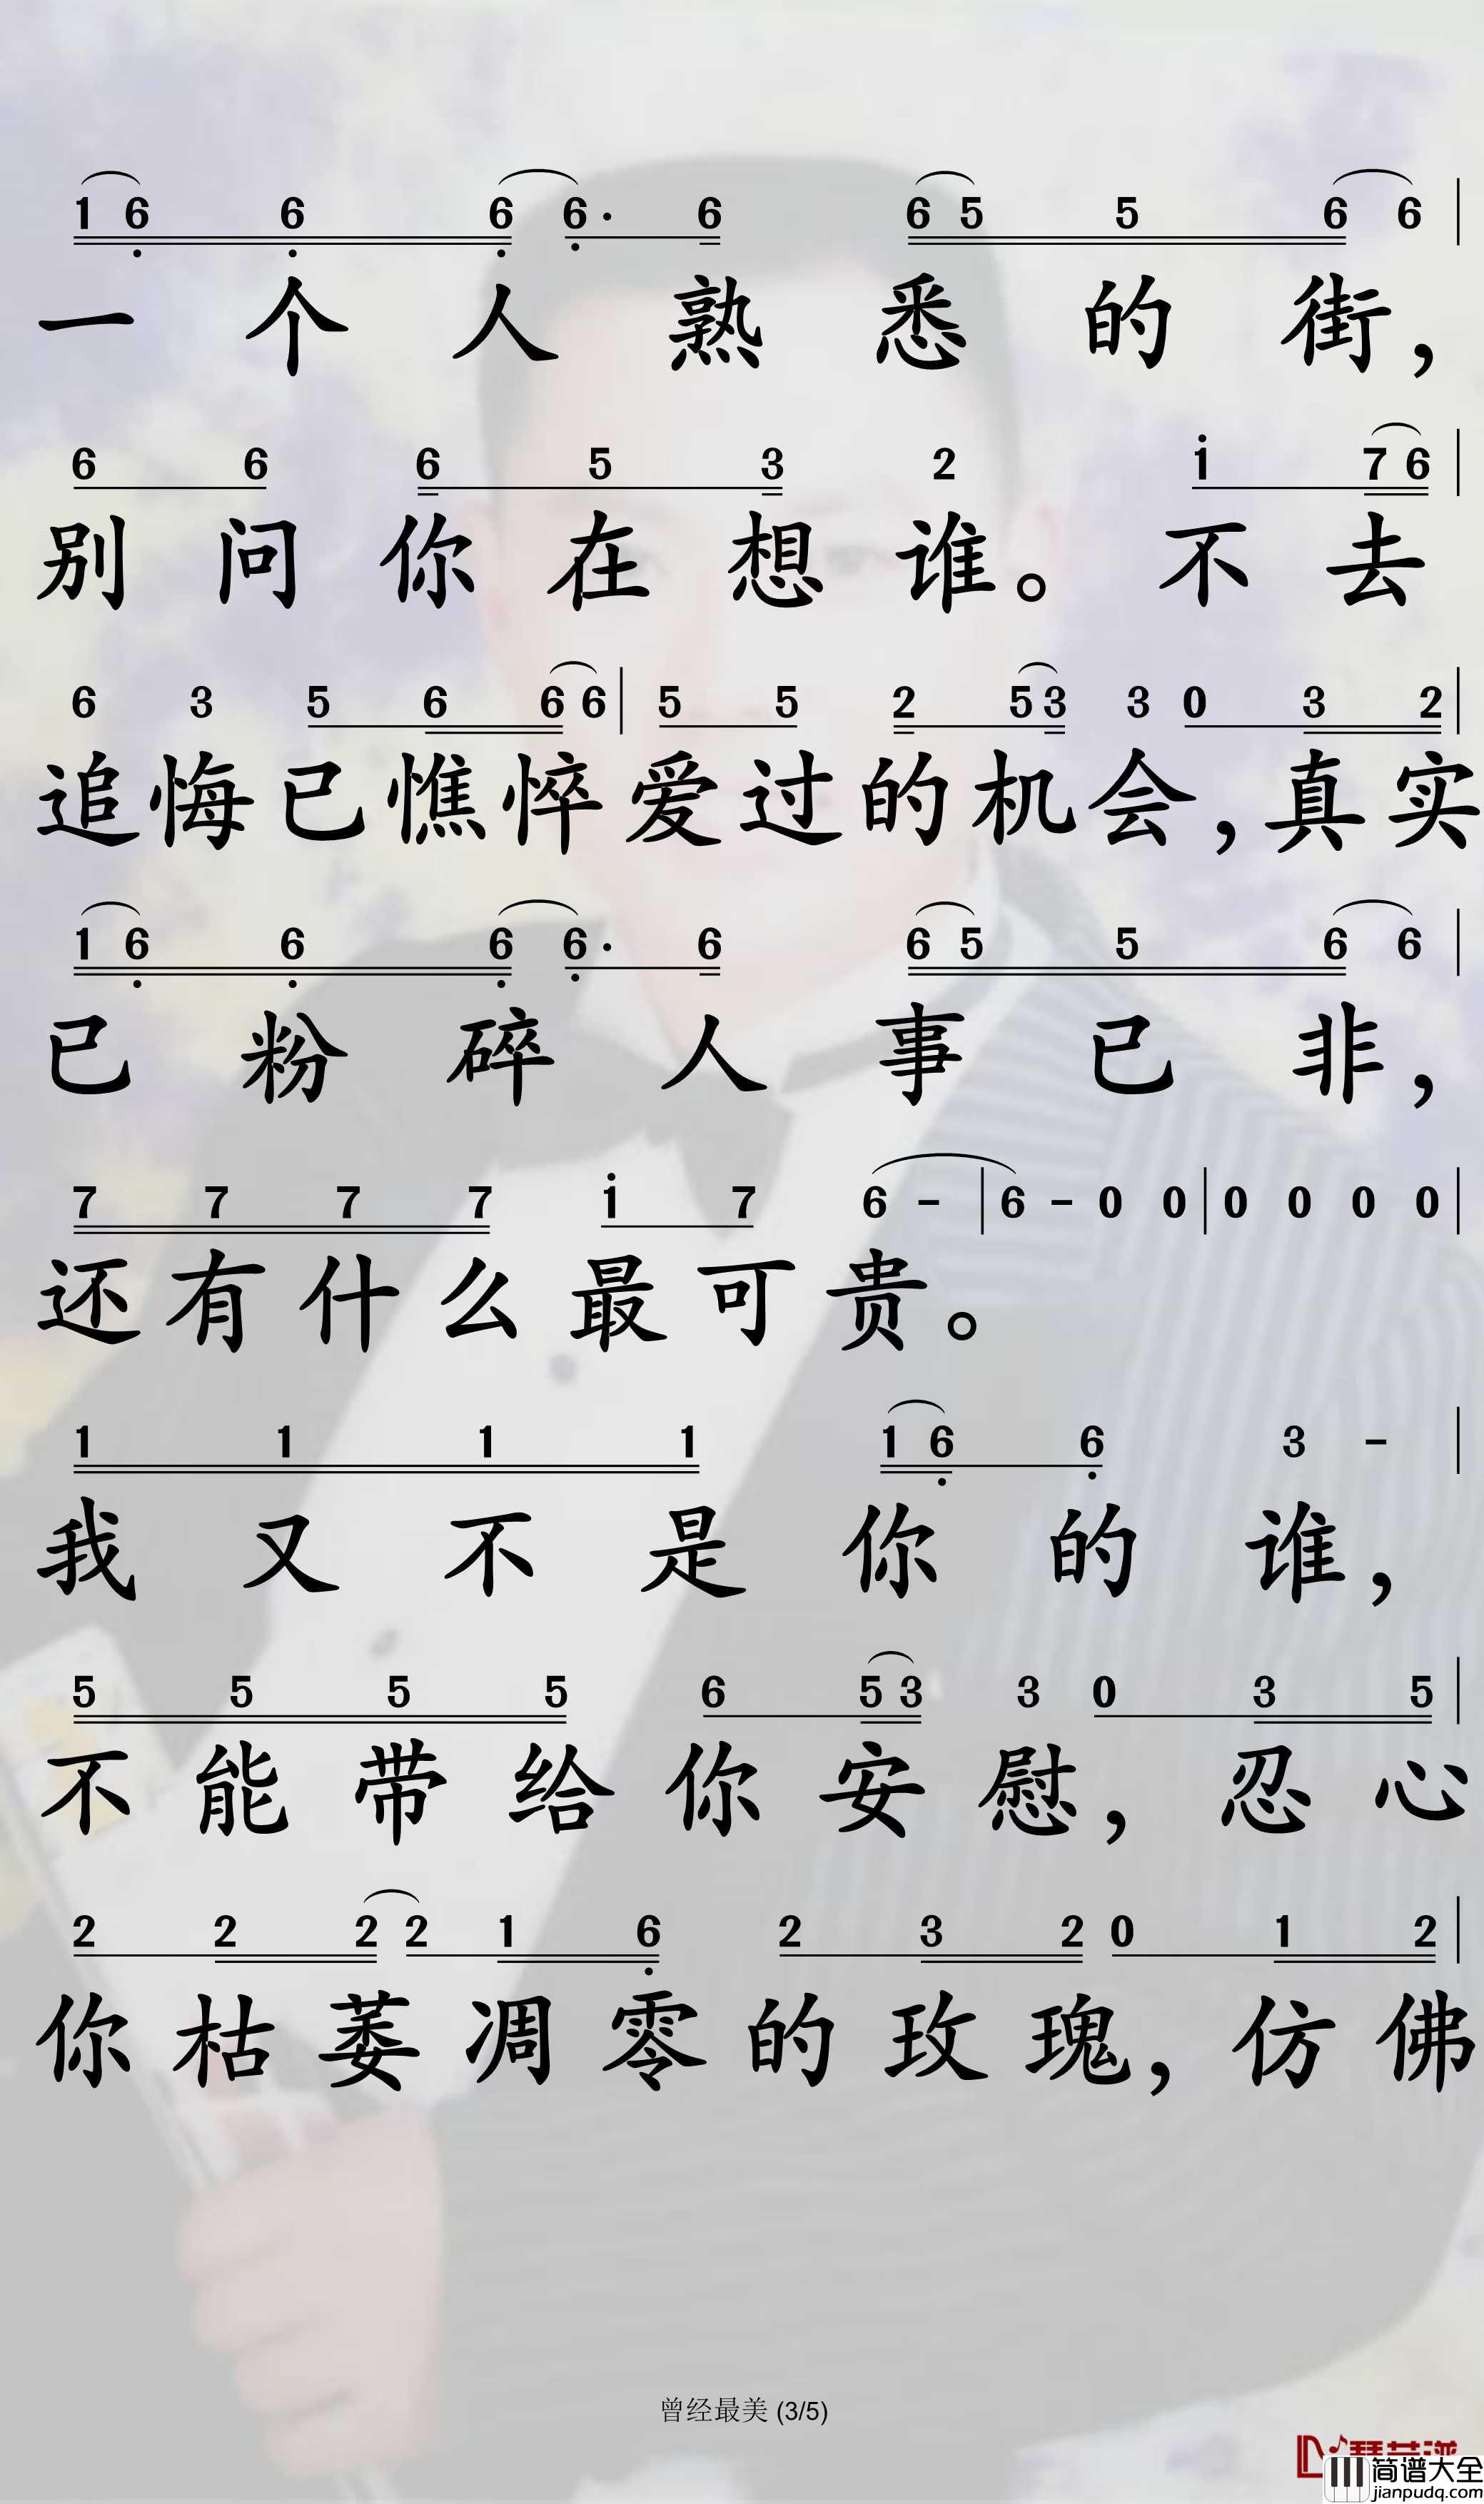 1 6 6 6 6· 6 6 5 5 6 6 |
一个人熟悉的街，
6 6 6 5 3 2 i 7 6 |
别问你在想谁。不去
6 3 5 6 6 6 | 5 5 2 5 3 3 0 3 2 |
追悔已憔悴爱过的机会，真实
1 6 6 6 6· 6 6 5 5 6 6 |
已粉碎人事已非，
7 7 7 7 i 7 6 - | 6 - 0 0 | 0 0 0 0 |
还有什么最可贵。
1 1 1 1 1 6 6 3 - |
我又不是你的谁，
5 5 5 5 6 5 3 3 0 3 5 |
不能带给你安慰，忍心
2 2 2 2 1 6 2 3 2 0 1 2 |
你枯萎凋零的玫瑰，仿佛
曾经最美 (3/5)
简谱大全
jianpudq.com